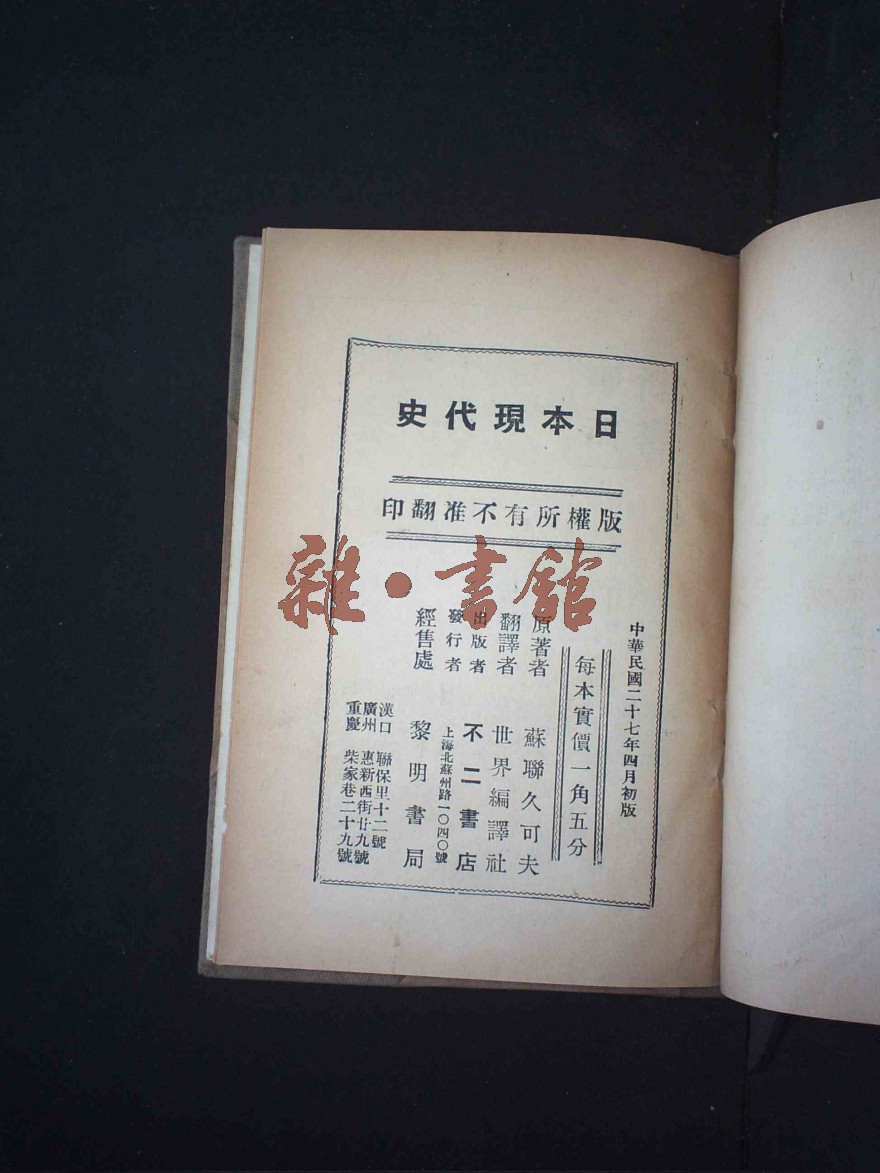 日本現代史
版權所有不准翻印
中華民國二十七年四月初版
每本實價一角五分
原著者 蘇聯久可夫
翻譯者 世界編譯社
出版者
發行者 不二書店
上海北蘇州路一〇四〇號
經售處 黎明書局
漢口 聯保里十二號
廣州 惠新西街廿九號
重慶 柴家巷二十九號
雜·書館